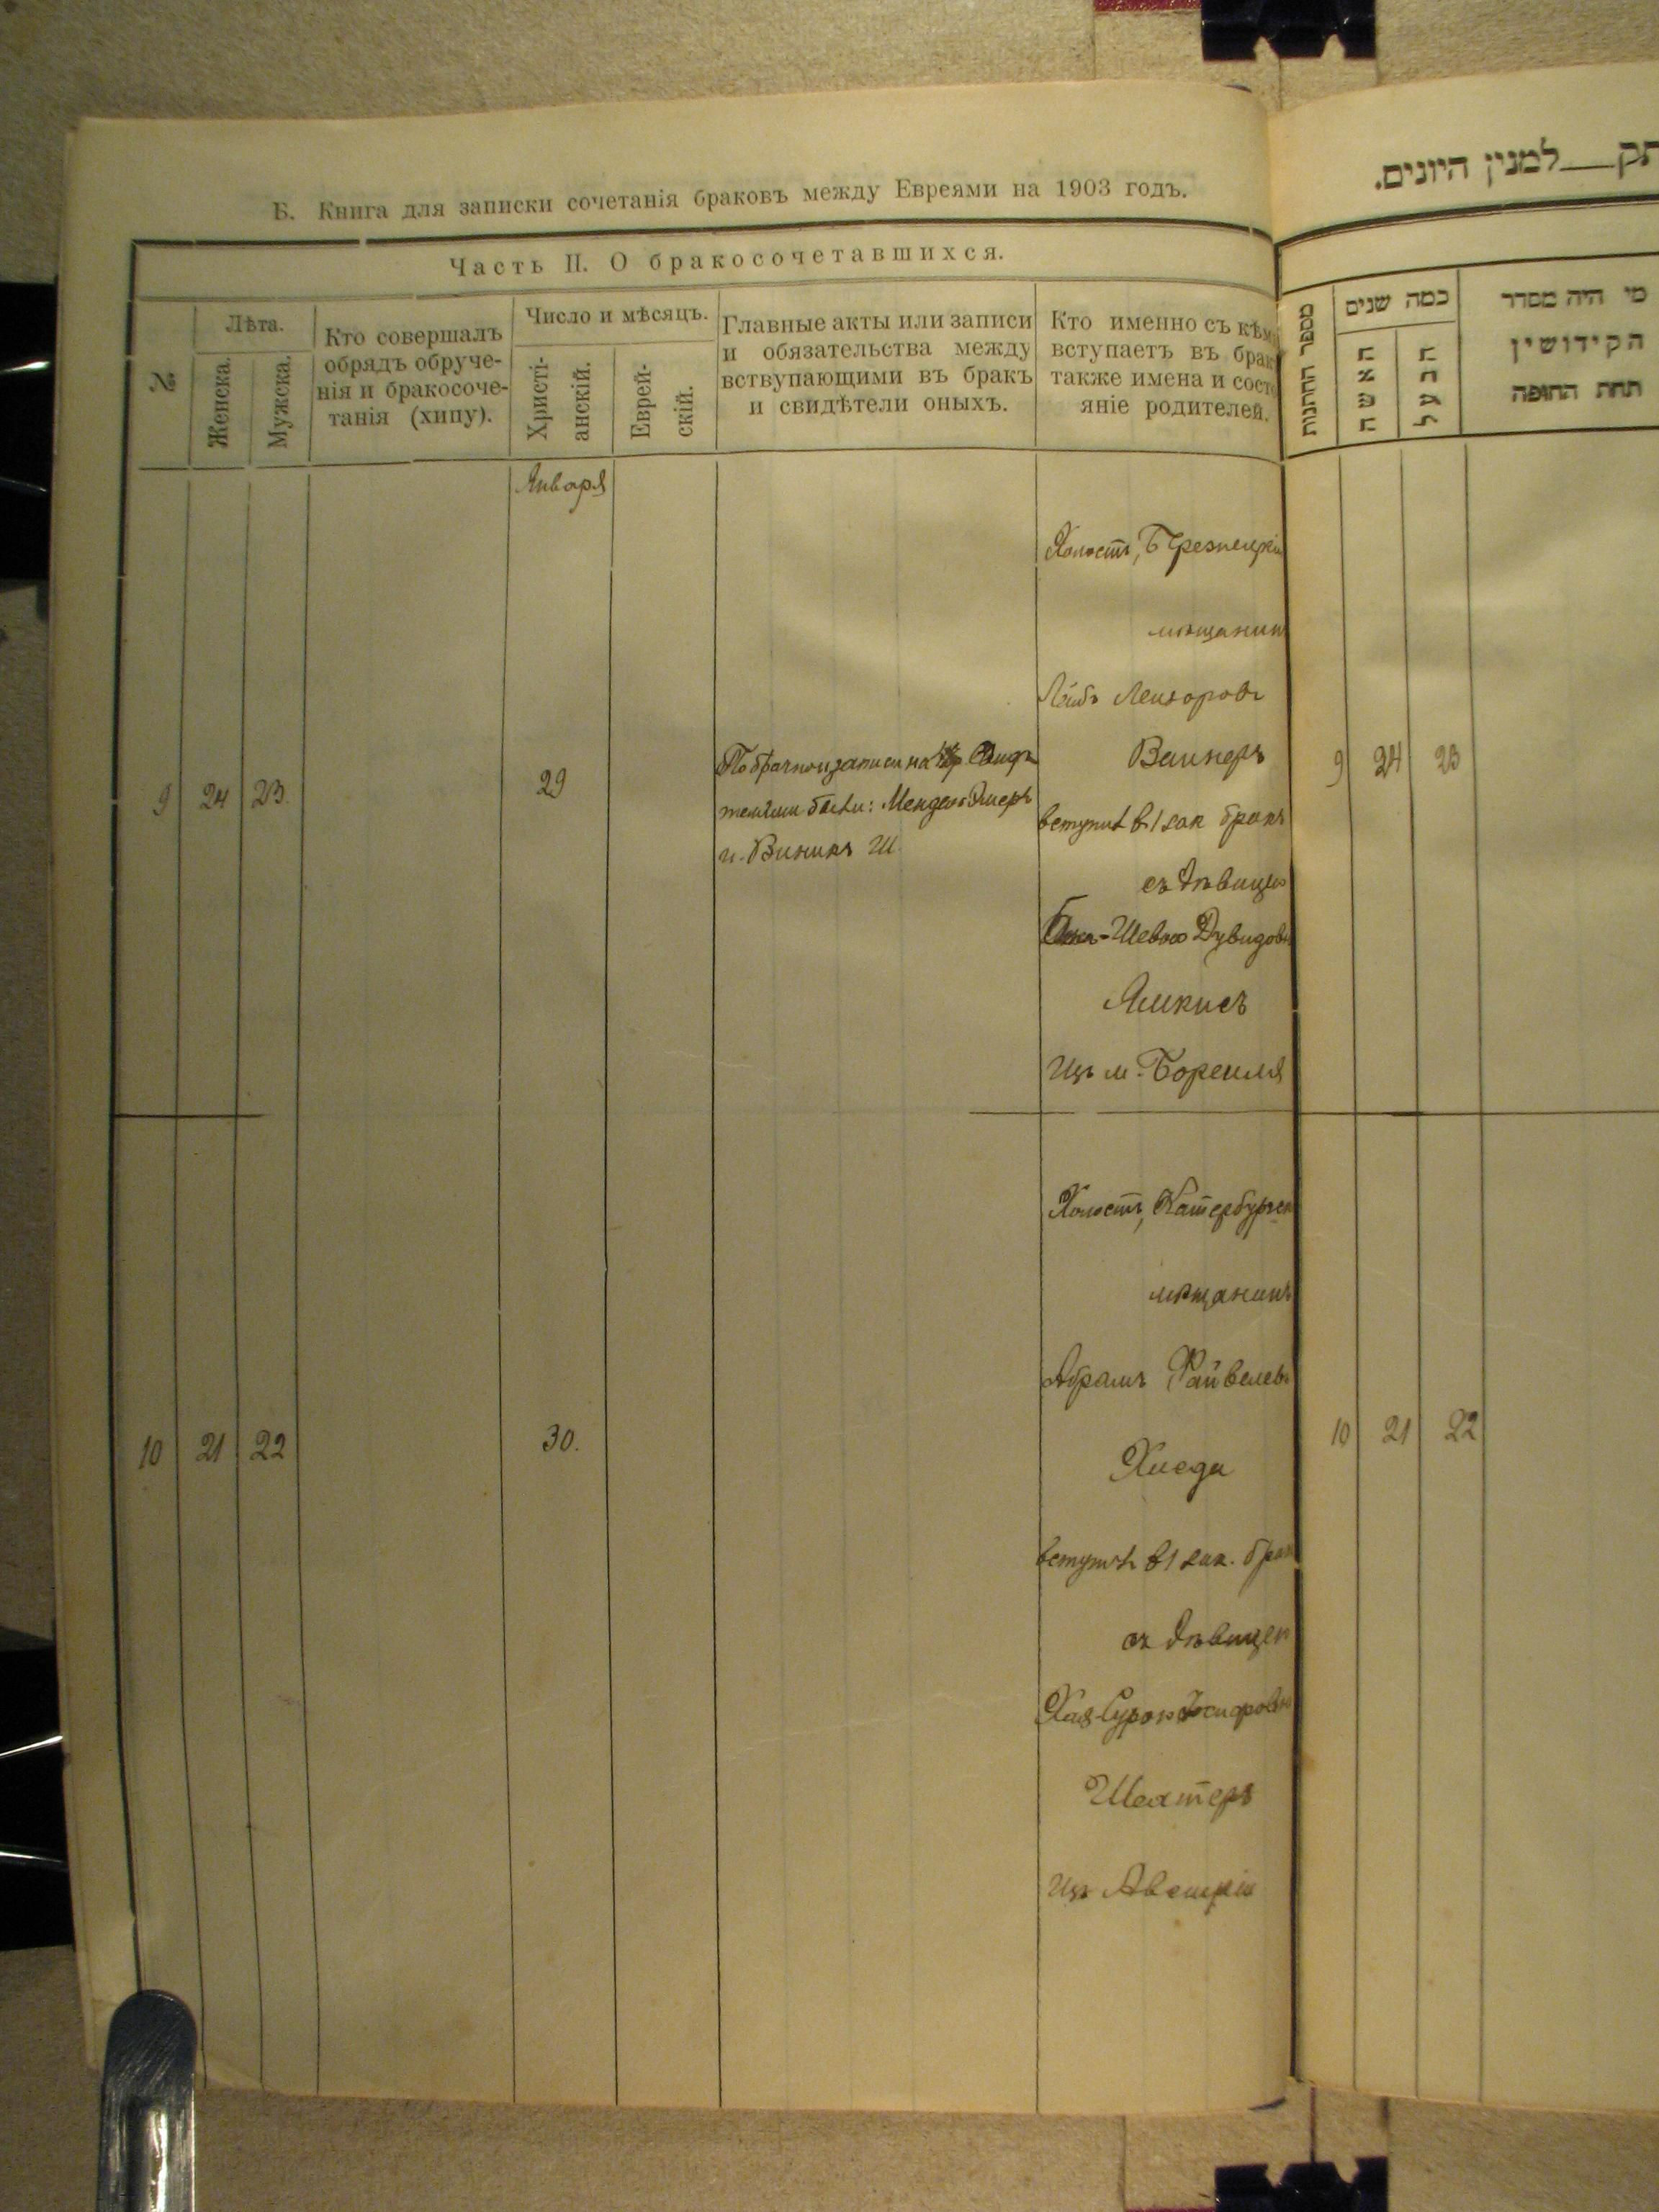 Б. Книга для записки сочетанія браковъ между Евреями на 1903 годъ.
Часть II. О бракосочетавшихся.
№
Лѣта.
Женска.
Мужска.
Кто совершалъ
обрядъ обруче-
нія и бракосоче-
танія (хипу).
Число и мѣсяцъ.
Христі-
анскій.
Еврей-
скій.
Главные акты или записи
и обязательства между
вствупающими въ бракъ
и свидѣтели оныхъ.
Кто именно съ кѣм
вступаетъ въ брак
также имена и состо
яніе родителей.
Января
9 24 23.
29
По брачной записи на
были: Мендель
и Виникъ Ш.
Холостъ,
мѣщанин
Лейб Лейзоровъ
Вайнеръ
вступил в 1 зак бракъ
съ дѣвицею
Шевою Дувидов
Яшкисъ
Изъ м.
10 21 22
30.
Холостъ, Катербургск
мѣщанинъ
Абрамъ Файвелев
Хиеда
вступилъ в 1 зак. брак
съ дѣвицею
Хая-Сурою
Шеатеръ
Изъ Австріи
תק__למנין היונים.
מספר החתנות
כמה שנים
האשה
הבעל
מי היה מסדר
הקידושין
תחת החופה
9 24 23
10 21 22